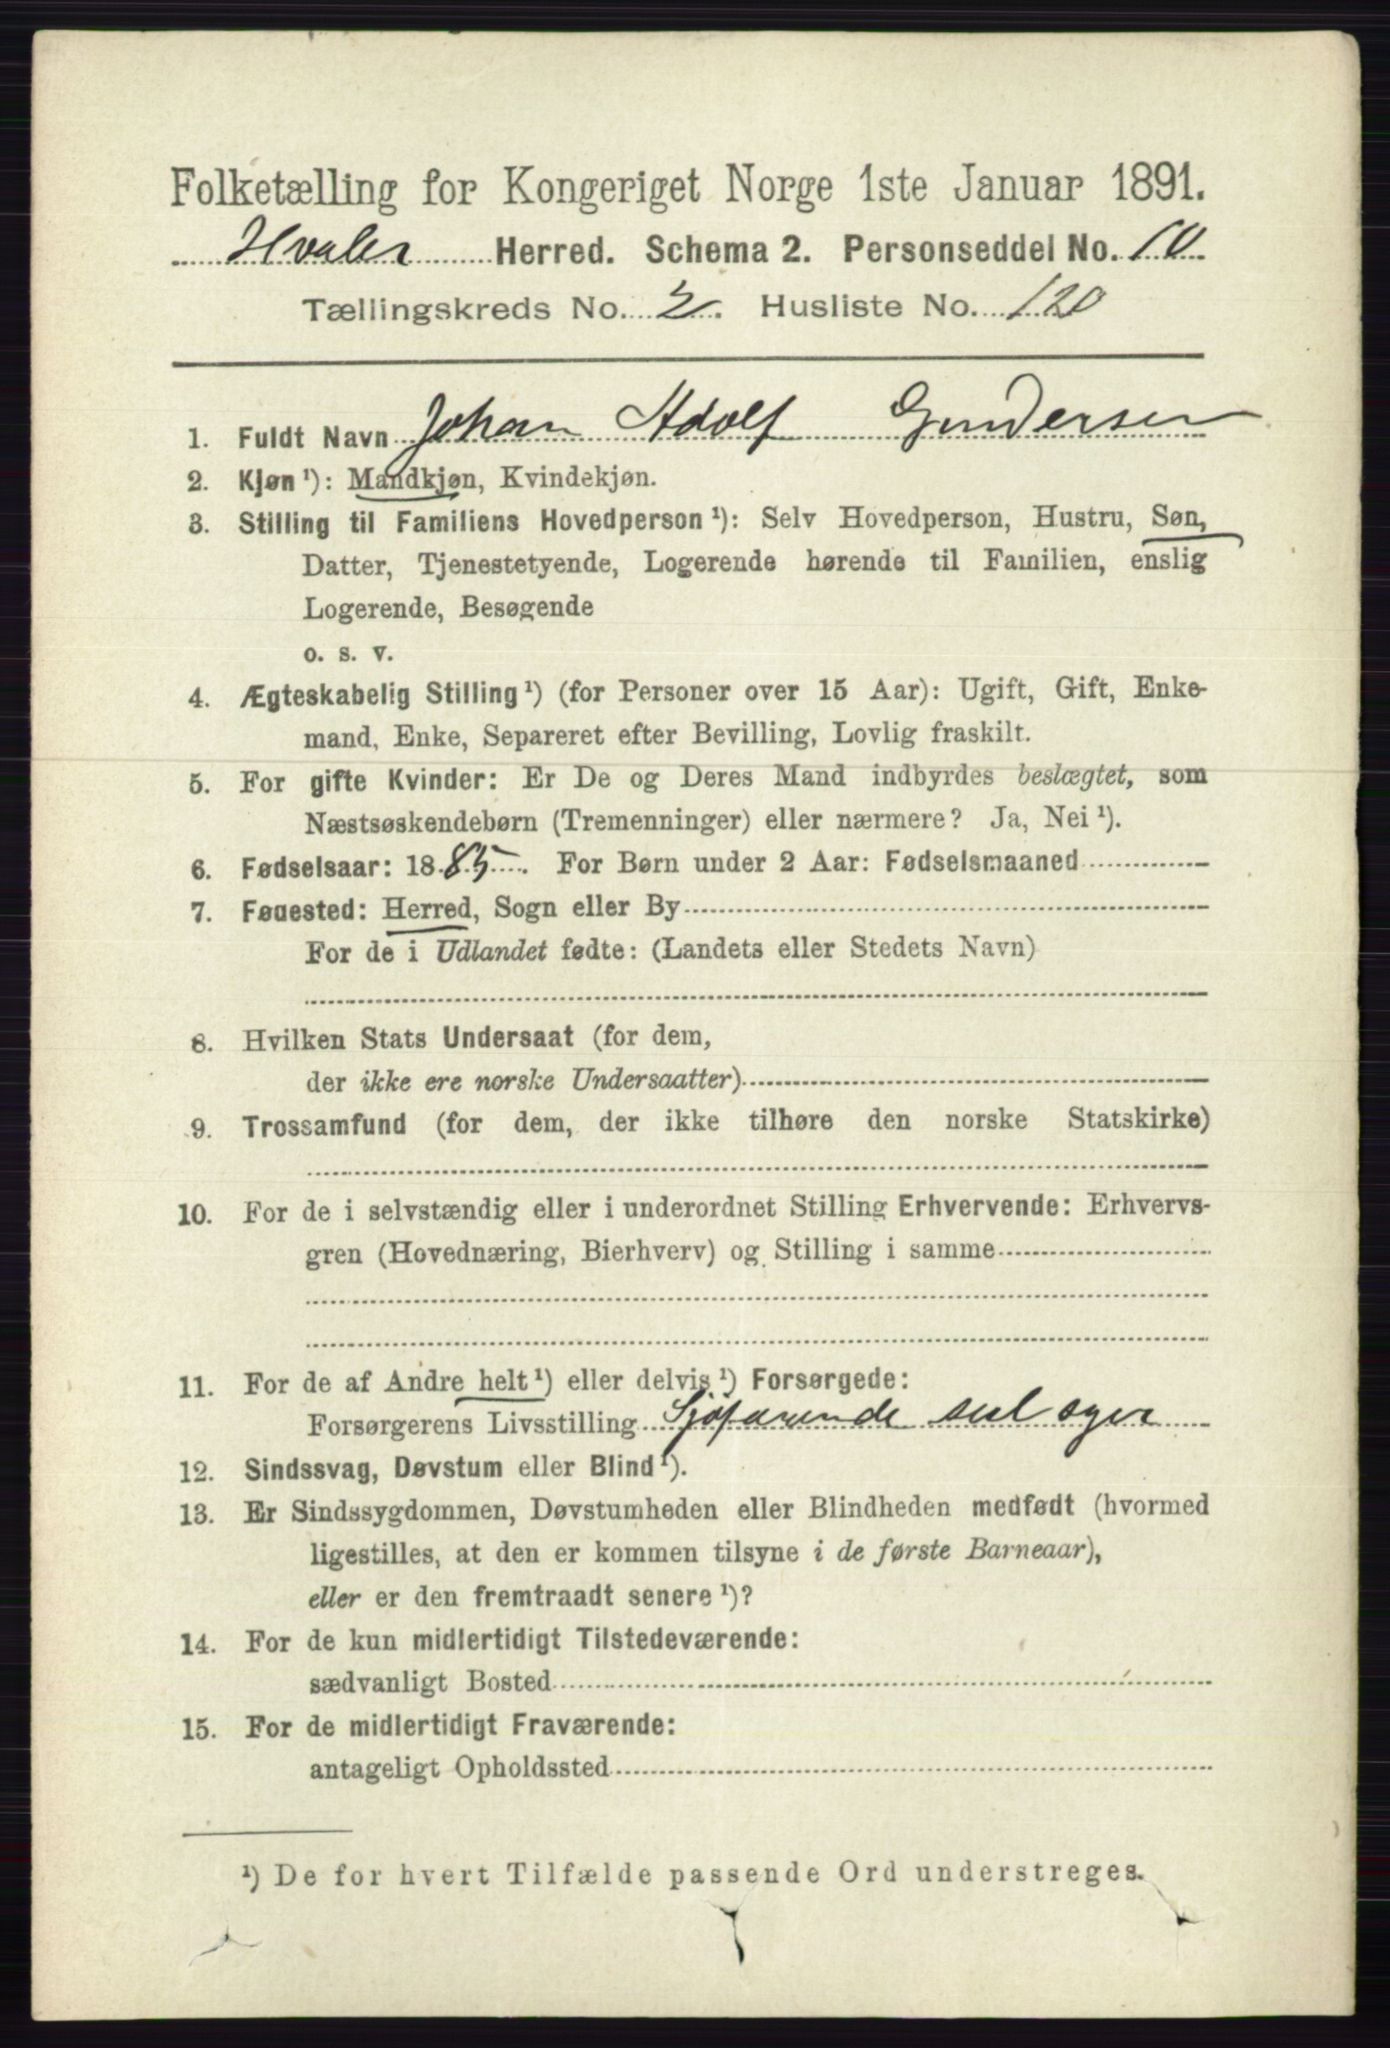 Folketælling for Kongeriget Norge 1ste Januar 1891.
Hvaler Herred. Schema 2. Personseddel No. 10
Tællingskreds No. 2. Husliste No. 120
1. Fuldt Navn Johan Adolf Gundersen
2. Kjøn ¹): Mandkjøn, Kvindekjøn.
3. Stilling til Familiens Hovedperson ¹): Selv Hovedperson, Hustru, Søn,
Datter, Tjenestetyende, Logerende hørende til Familien, enslig
Logerende, Besøgende
o. s. v.
4. Ægteskabelig Stilling ¹) (for Personer over 15 Aar): Ugift, Gift, Enke-
mand, Enke, Separeret efter Bevilling, Lovlig fraskilt.
5. For gifte Kvinder: Er De og Deres Mand indbyrdes beslægtet, som
Næstsøskendebørn (Tremenninger) eller nærmere? Ja, Nei ¹).
6. Fødselsaar: 1885. For Børn under 2 Aar: Fødselsmaaned
7. Føuested: Herred, Sogn eller By
For de i Udlandet fødte: (Landets eller Stedets Navn)
8. Hvilken Stats Undersaat (for dem,
der ikke ere norske Undersaatter)
9. Trossamfund (for dem, der ikke tilhøre den norske Statskirke)
10. For de i selvstændig eller i underordnet Stilling Erhvervende: Erhvervs-
gren (Hovednæring, Bierhverv) og Stilling i samme
11. For de af Andre helt ¹) eller delvis ¹) Forsørgede:
Forsørgerens Livsstilling Sjøfarende
12. Sindssvag, Døvstum eller Blind ¹).
13. Er Sindssygdommen, Døvstumheden eller Blindheden medfødt (hvormed
ligestilles, at den er kommen tilsyne i de første Barneaar),
eller er den fremtraadt senere ¹)?
14. For de kun midlertidigt Tilstedeværende:
sædvanligt Bosted
15. For de midlertidigt Fraværende:
antageligt Opholdssted
¹) De for hvert Tilfælde passende Ord understreges.